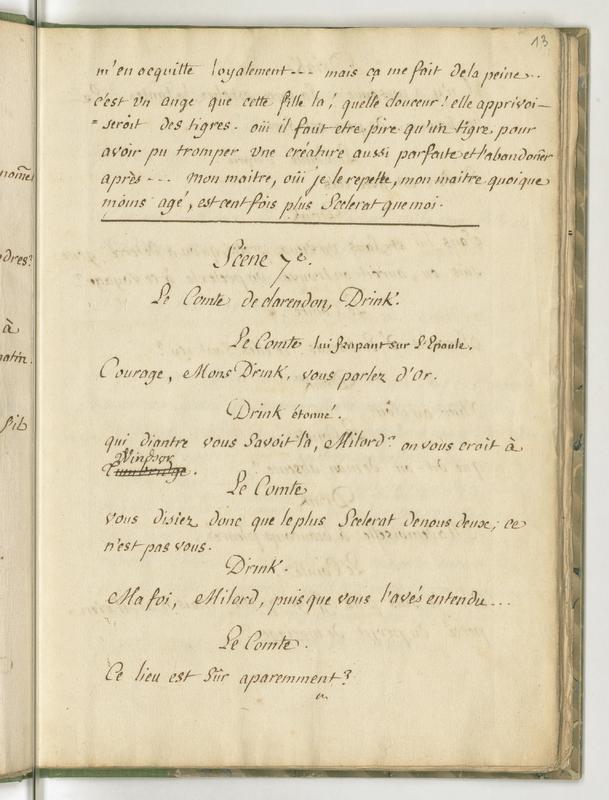 13
m'en acquitte loyalement --- mais ça me fait de la peine..
c'est un ange que cette fille la! quelle douceur! elle apprivoi-
=seroit des tigres. oüi il faut etre pire qu'un tigre, pour
avoir pu tromper une créature aussi parfaite et l'abandoñer
après --- mon maitre, oüi je le repette, mon maitre quoique
moins agé, est cent fois plus Scelerat que moi.
Scène 7e.
Le Comte de clarendon, Drink.
Le Comte lui frapant sur l'Epaule.
Courage, Mons Drink, vous parlez d'Or.
Drink étonné.
qui diantre vous Savoit là, Milord? on vous croit à
Windsor
Le Comte
vous disiez donc que le plus Scelerat de nous deux, ce
n'est pas vous.
Drink.
Ma foi, Milord, puisque vous l'avés entendu...
Le Comte.
Ce lieu est Sûr aparemment?
nom̃e
dres?
à
matin.